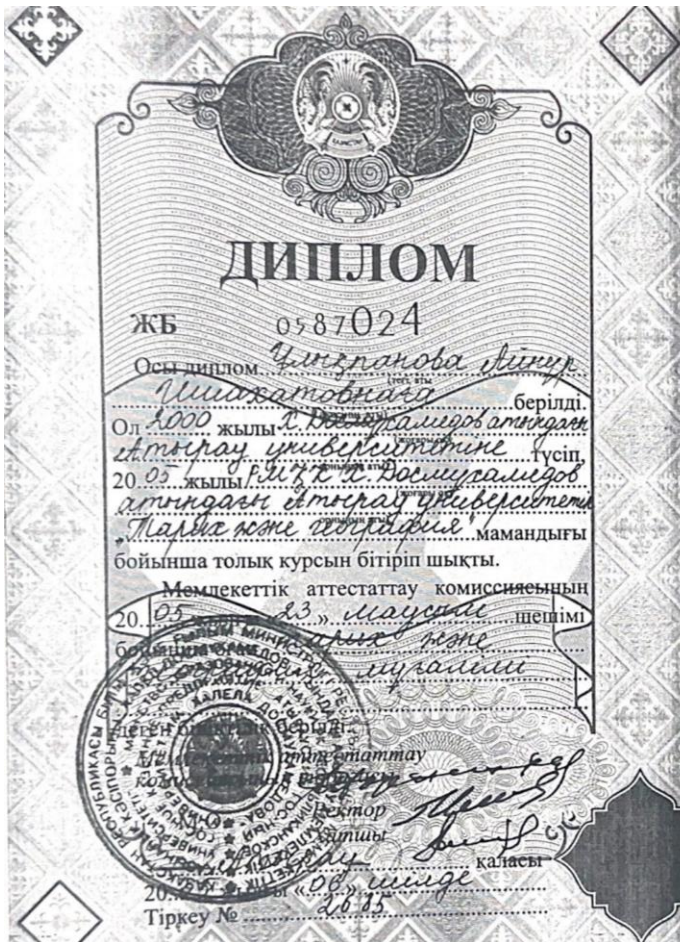 ҚАЗАҚСТАН
ДИПЛОМ
ЖБ 0587024
Осы диплом Ұлықпанова Айнұр
(тегі, аты
Ишахатовнаға берілді.
Ол 2000 жылы Х. Досмұхамедов атындағы
Атырау университетіне түсіп,
20 05 жылы РМҚК Х. Досмұхамедов
атындағы Атырау университетін
"Тарих және география" мамандығы
бойынша толық курсын бітіріп шықты.
Мемлекеттік аттестаттау комиссиясының
20 05 23 » маусым шешімі
бойынша оған тарих және
мұғалімі
деген біліктілік берілді.
Мемлекеттік аттестаттау
Ректор
Хатшы
қаласы
20 «06» шілде
Тіркеу № 2685